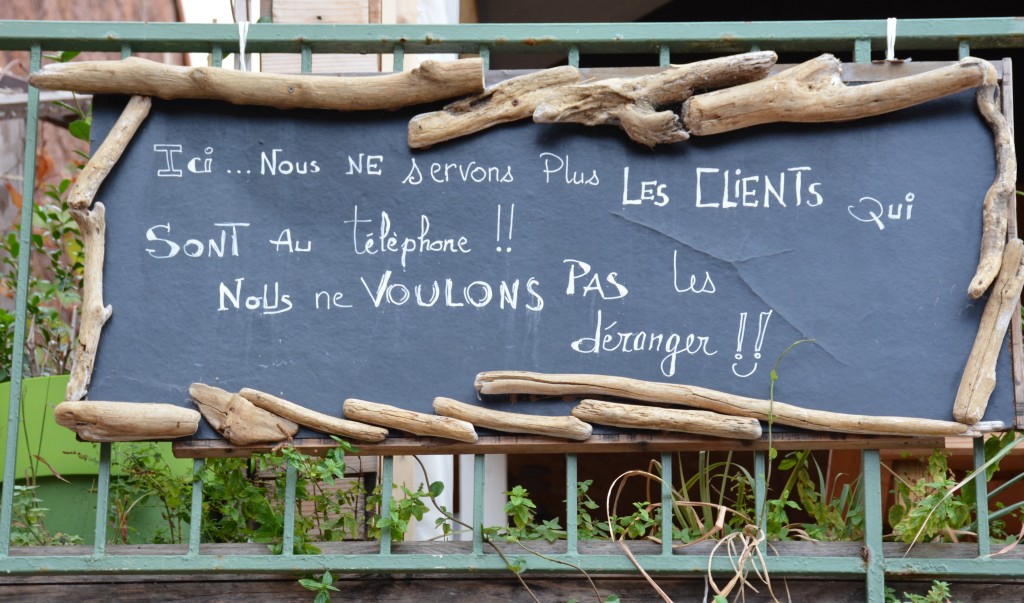 Ici ... Nous NE servons Plus LES CLIENTS Qui
SONT Au télèphone !!
Nous ne VOULONS PAS les
déranger !!